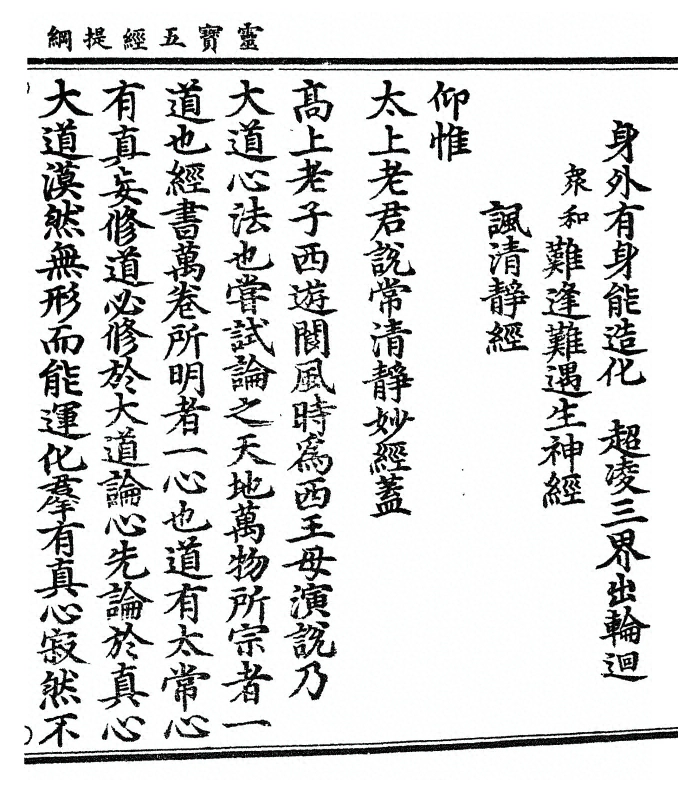 靈寶五經提綱
身外有身能造化　超凌三界出輪迴
衆和難逢難遇生神經
諷清靜經
仰惟
太上老君說常清靜妙經蓋
高上老子西遊閬風時爲西王母演說乃
大道心法也嘗試論之天地萬物所宗者一
道也經書萬卷所明者一心也道有太常心
有真妄修道必修於大道論心先論於真心
大道漠然無形而能運化羣有真心寂然不